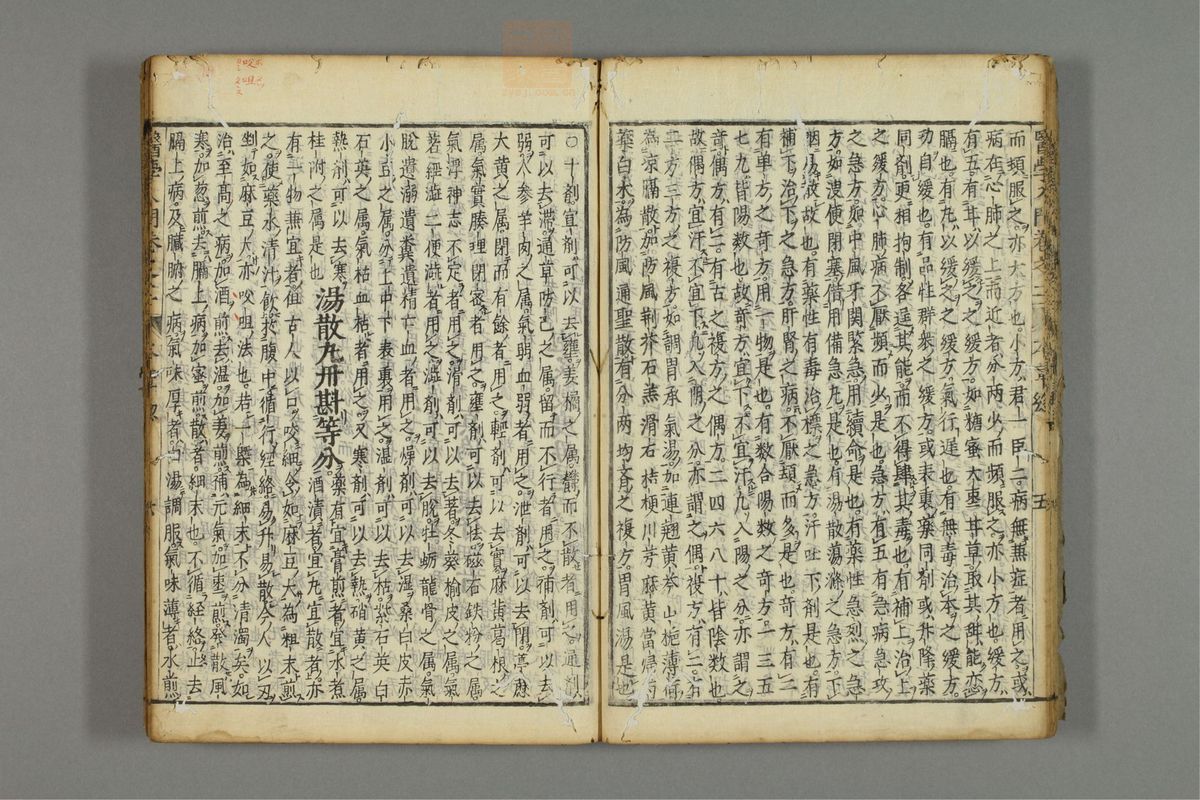 而頻服之亦大方也小方君一臣二病無兼症者用之或
病在心肺之上而近者分兩少而頻服之亦小方也緩方
有五有甘以緩之之緩方如糖蜜大棗甘草取其甜能恋
膈也有丸以緩之之緩方氣行遅也有無毒治本之緩方
功自緩也有品性群衆之緩方或表裏藥同剤或升降藥
同剤更相拘制各逞其能而不得肆其毒也有補上治上
之緩方心肺病不厭頻而少是也急方有五有急病急攻
之急方如中風牙関緊急用續命是也有藥性急烈之急
方如溲便閉塞借用備急丸是也有湯散蕩滌之急方下
咽易散故也有藥性有毒治標之急方汗吐下剤是也有
補下治下之急方肝腎之病不厭頻而多是也奇方有二
有单方之奇方用一物是也有数合陽数之奇方一三五
七九皆陽数也故奇方宜下不宜汗凡入陽之分亦謂之
奇偶方有二有古之複方之偶方二四六八十皆陰数也
故偶方宜汗不宜下凡入陰之分亦謂之偶複方有二有
二方三方之複方如調胃承氣湯加連翹黄芩山梔薄荷
為凉膈散加防風荆芥石羔滑石桔梗川芎麻黄當帰芍
藥白术為防風通聖散有分两均齊之複方胃風湯是也
〇十剤宜剤可以去壅姜橘之属欝而不散者用之通剤
可以去滯通草防己之属留而不行者用之補剤可以去
弱人参羊肉之属氣弱血弱者用之泄剤可以去閉葶藶
大黄之属閉而有餘者用之輕剤可以去實麻黄葛根之
属氣實腠理閉密者用之重剤可以去怯磁石鉄粉之属
氣浮神志不定者用之滑剤可以去著冬葵榆皮之属氣
著經澁二便澁者用之澁剤可以去脫牡蛎龍骨之属氣
脫遺溺遺糞遺精亡血者用之燥剤可以去湿桑白皮赤
小豆之属分上中下表裏用之湿剤可以去枯紫石英白
石英之属氣枯血枯者用之又寒剤可以去熱硝黄之属
熱剤可以去寒
桂附之属是也
湯散丸丹斟等分
藥有宜膏煎者宜水煮
有一物兼宜者但古人以口咬細令如麻豆大為粗末煎
之使藥水清汁飲於腹中循行經絡易升易散今人以刀
剉如麻豆大亦㕮咀法也若一槩為細末不分清濁矣如
治至高之病加酒煎去湿加姜煎補元氣加棗煎発散風
寒加葱煎去膈上病加蜜煎散者細末也不循經絡止去
膈上病及臟腑之病氣味厚者白湯調服氣味薄者水煎